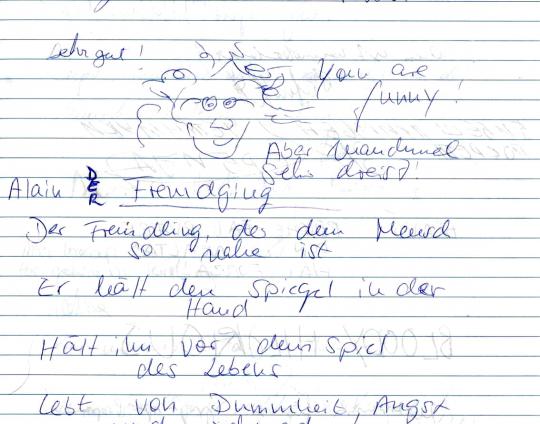 Sehr gut!
You are
funny!
Aber manchmal
sehr dreist!
Alain DER Fremdging
Der Fremdling, der dem Mensch
so nahe ist
Er hält den Spiegel in der
Hand
Hält ihn vor dem Spiel
des Lebens
Lebt von Dummheit, Angst